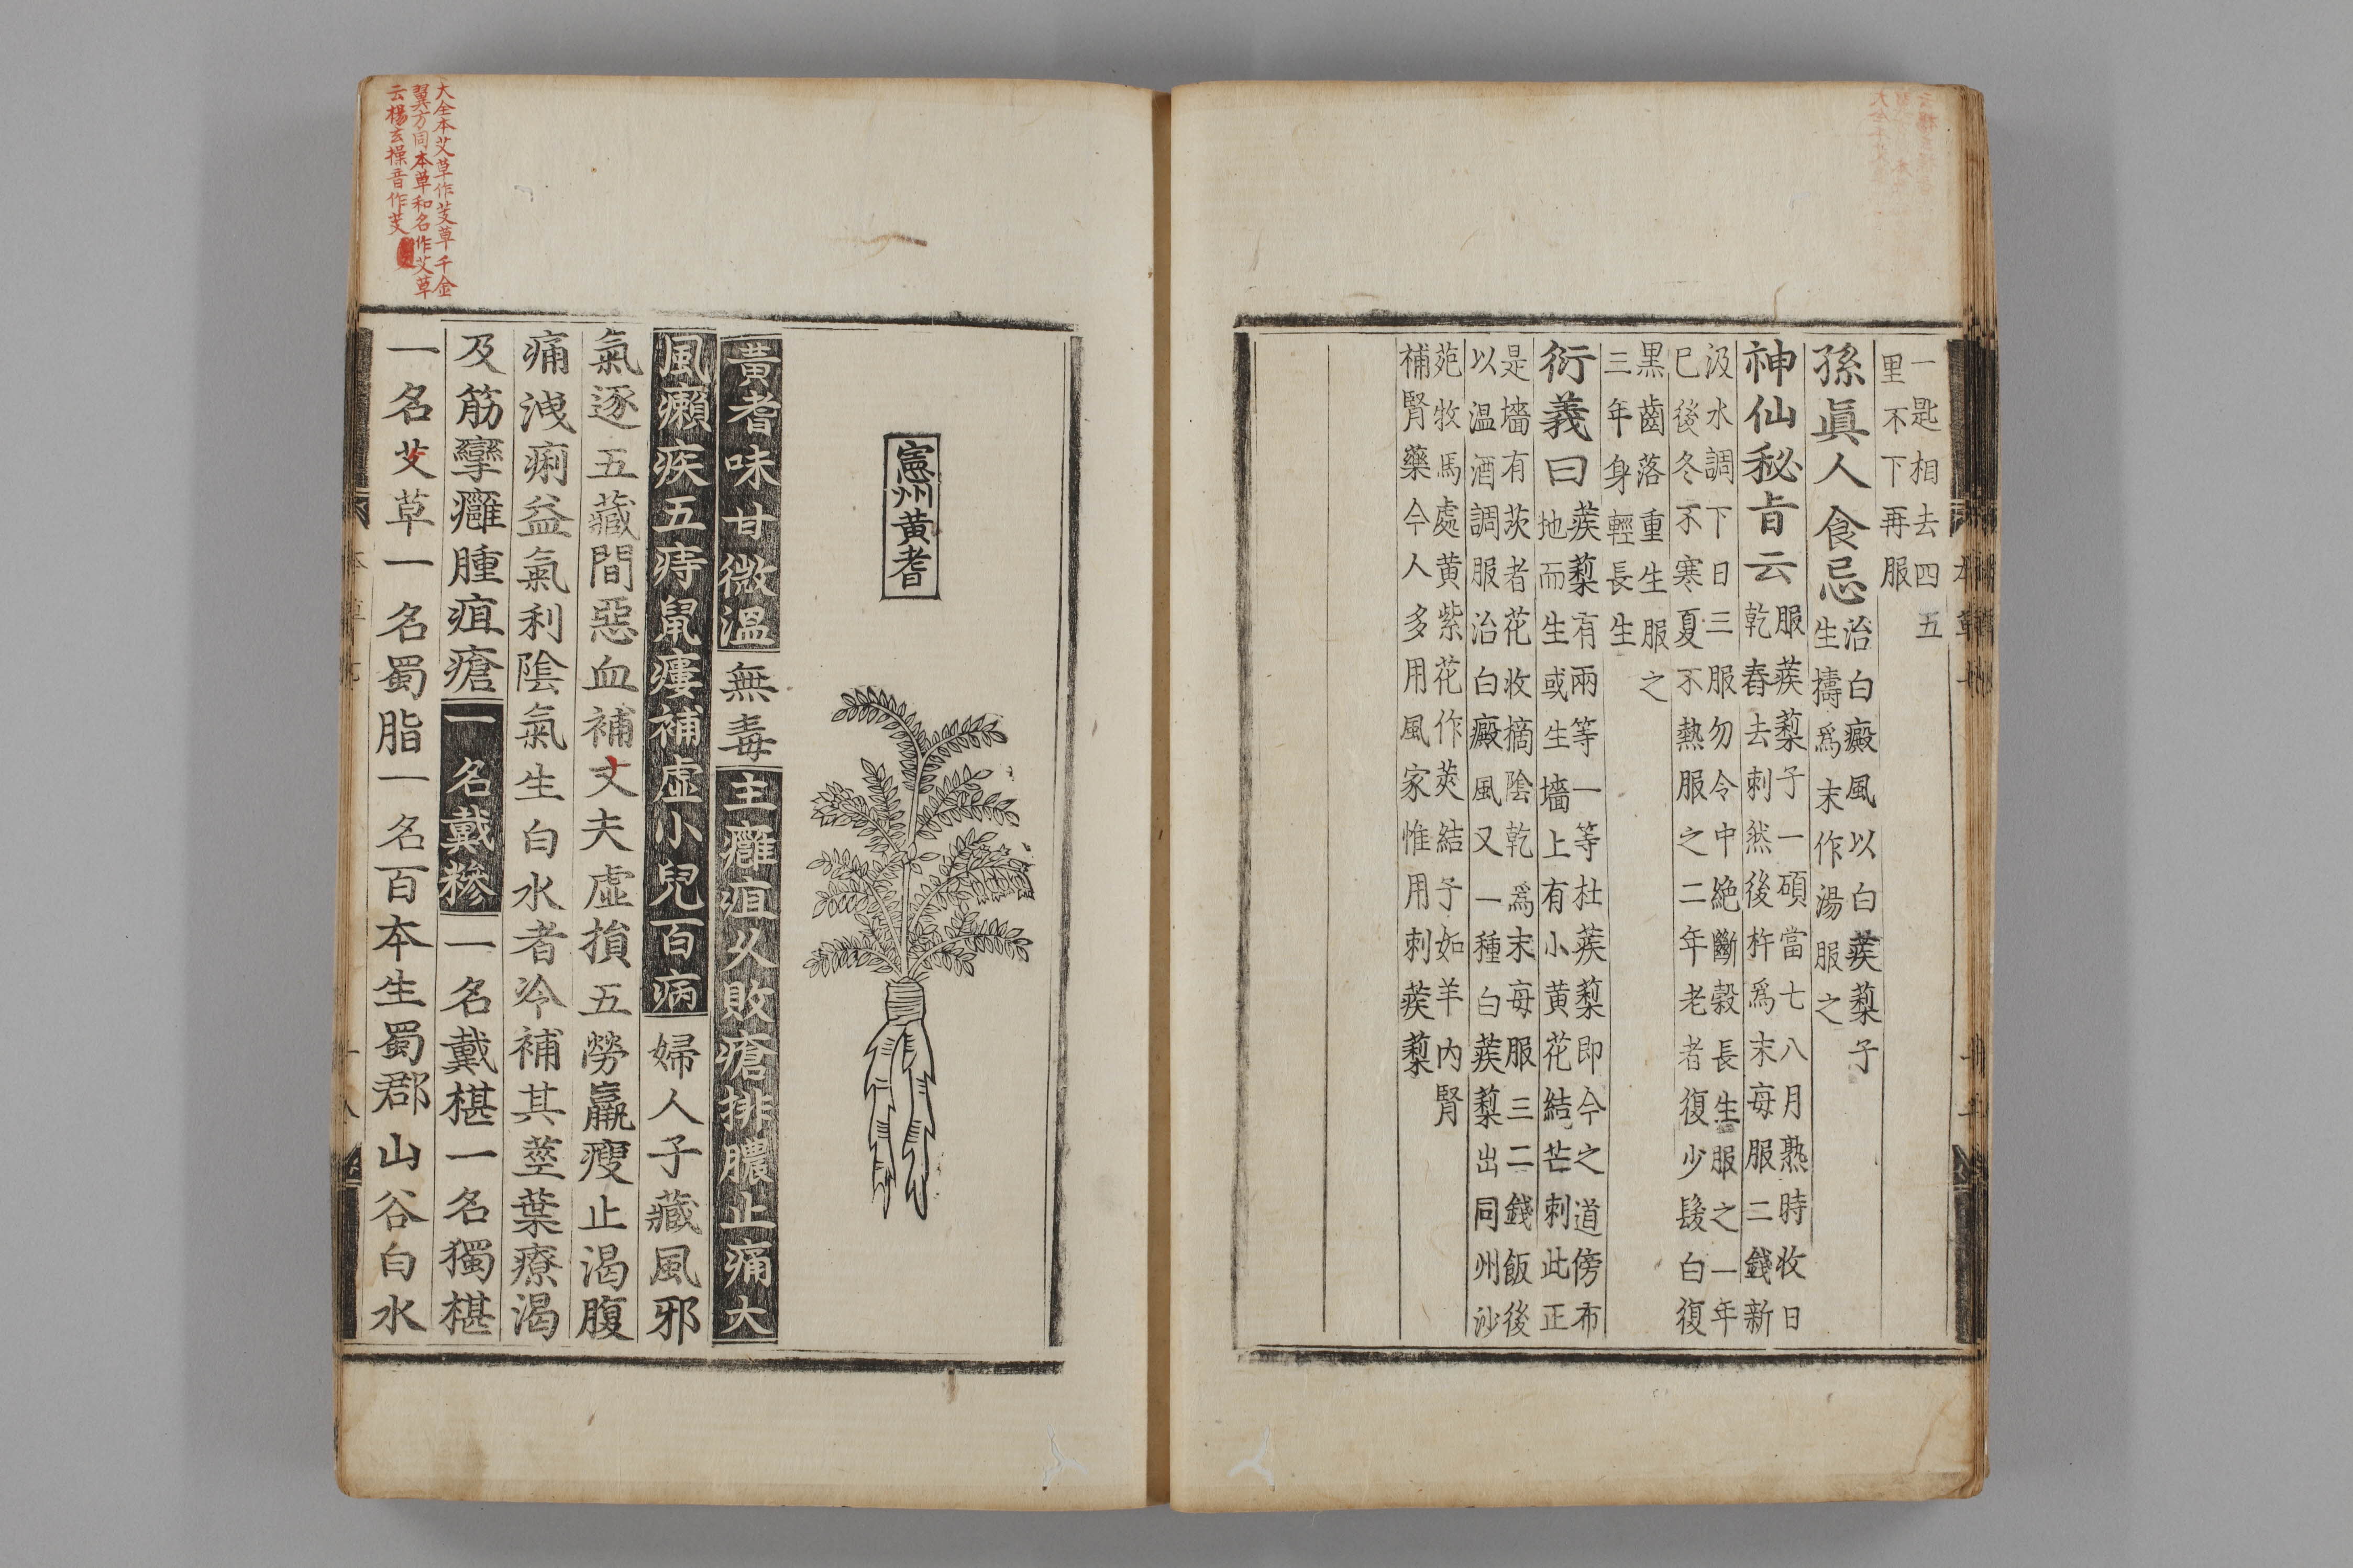 一匙相去四五
里不下再服
孫眞人食忌
治白癜風以白蒺蔾子
生擣爲末作湯服之
神仙秘旨云
服蒺蔾子一碩當七八月熟時收日
乾舂去刺然後杵爲末每服二錢新
汲水調下日三服勿令中絶斷穀長生服之一年
已後冬不寒夏不熱服之二年老者復少髮白復
黑齒落重生服之
三年身輕長生
衍義曰
蒺蔾有兩等一等杜蒺蔾即今之道傍布
地而生或生墻上有小黄花結芒刺此正
是墻有茨者花收摘陰乾爲末每服三二錢飯後
以温酒調服治白癜風又一種白蒺蔾出同州沙
苑牧馬處黄紫花作莢結子如羊内腎
補腎藥今人多用風家惟用刺蒺蔾
憲州黄耆
黃耆味甘微溫無毒主癰疽久敗瘡排膿止痛大
風癩疾五痔鼠瘻補虛小兒百病婦人子藏風邪
氣逐五藏間惡血補丈夫虛損五勞羸瘦止渴腹
痛洩痢益氣利陰氣生白水者冷補其莖葉療渴
及筋攣癰腫疽瘡一名戴糝一名戴椹一名獨椹
一名艾草一名蜀脂一名百本生蜀郡山谷白水
大全本艾草作芰草千金
翼方同本草和名作艾草
云楊玄操音作芰